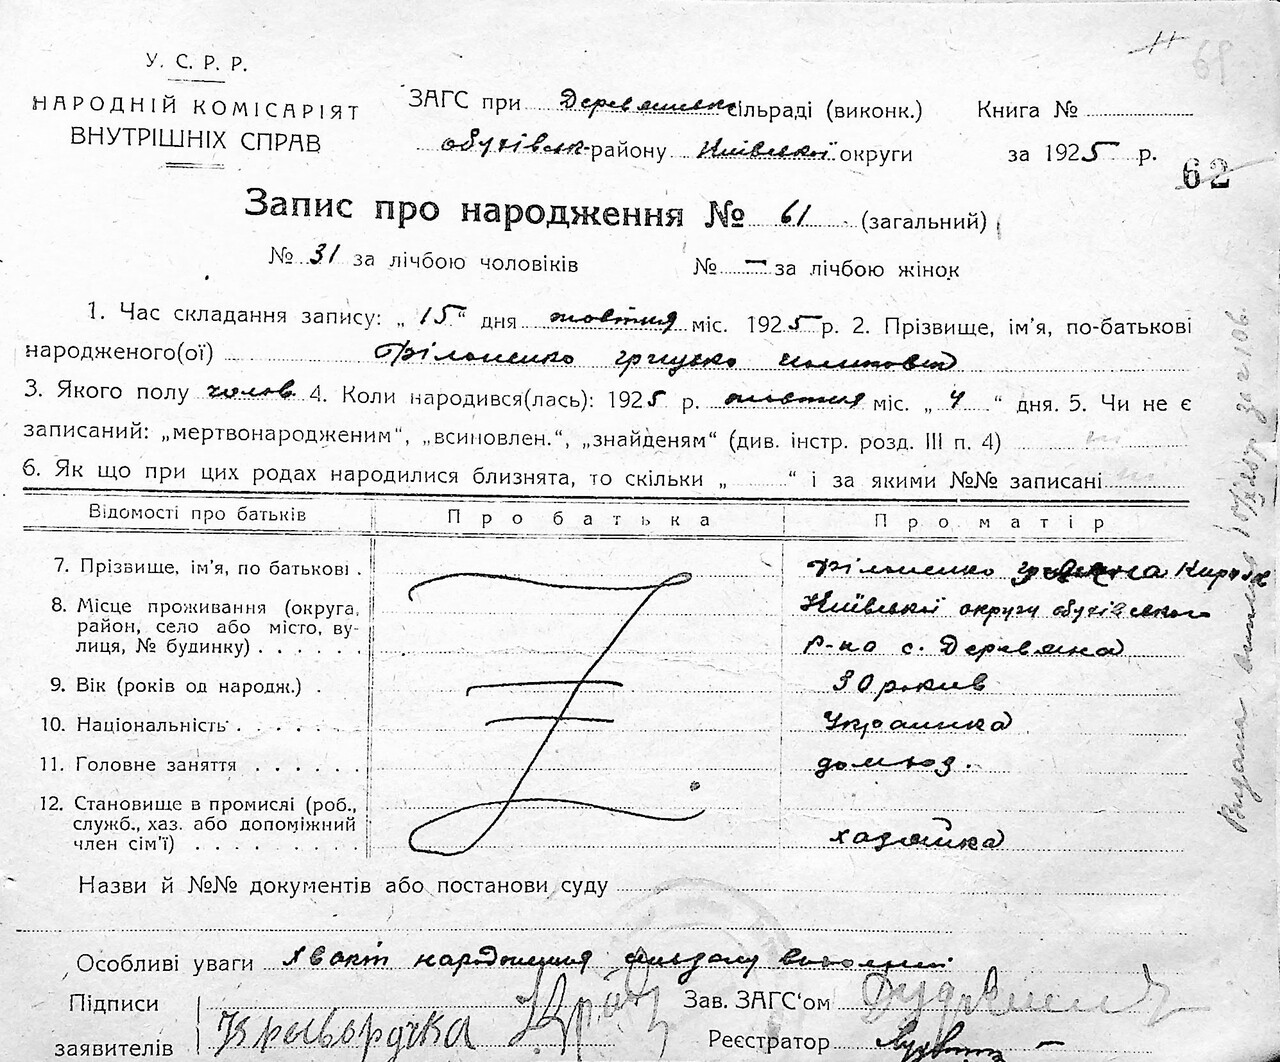 У. С. Р. Р.
НАРОДНІЙ КОМІСАРІЯТ
ВНУТРІШНІХ СПРАВ
ЗАГС при Деревянськ. сільраді (виконк.)
Обухівськ. району Київської округи
Книга №
за 1925 р.
62
Запис про народження № 61 (загальний)
№ 31 за лічбою чоловіків № — за лічбою жінок
1. Час складання запису: „ 15 “ дня жовтня міс. 1925 р. 2. Прізвище, ім'я, по-батькові
народженого(ої) Філоненко
3. Якого полу чолов. 4. Коли народився(лась): 1925 р. жовтня міс. „ 4 “ дня. 5. Чи не є
записаний: „мертвонародженим“, „всиновлен.“, „знайденям“ (див. інстр. розд. III п. 4) ні
6. Як що при цих родах народилися близнята, то скільки „ “ і за якими №№ записані ні
Відомості про батьків Про батька Про матір
7. Прізвище, ім'я, по батькові . Філоненко
8. Місце проживання (округа, Київської округи Обухівського
район, село або місто, ву- р-на с. Деревяна
лиця, № будинку) . . . . . .
9. Вік (років од народж.) . 30 років
10. Національність . . . . . . Украинка
11. Головне заняття . . . . . . домгоз.
12. Становище в промислі (роб.,
служб., хаз. або допоміжний
член сім'ї) . . . . . . . . . хазяйка
Назви й №№ документів або постанови суду
Особливі уваги Хвакт народження
Підписи
заявителів Криворучка
Зав. ЗАГС'ом
Реєстратор
Видана